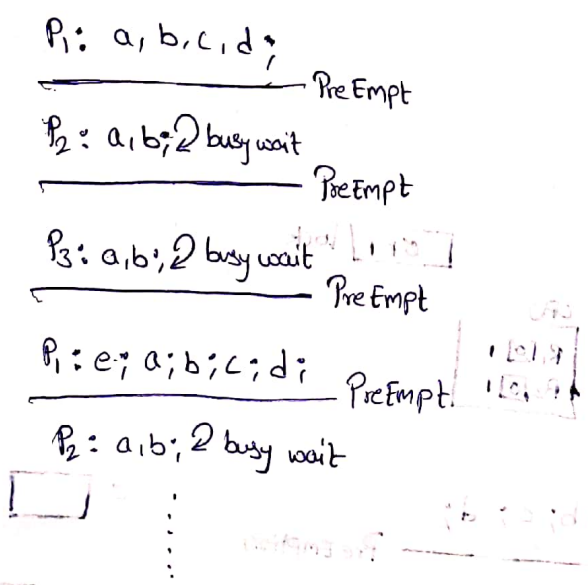 P₁: a, b, c, d;
PreEmpt
P₂: a, b; busy wait
PreEmpt
P₃: a, b; busy wait
PreEmpt
P₁: e; a; b; c; d;
PreEmpt.
P₂: a, b; busy wait